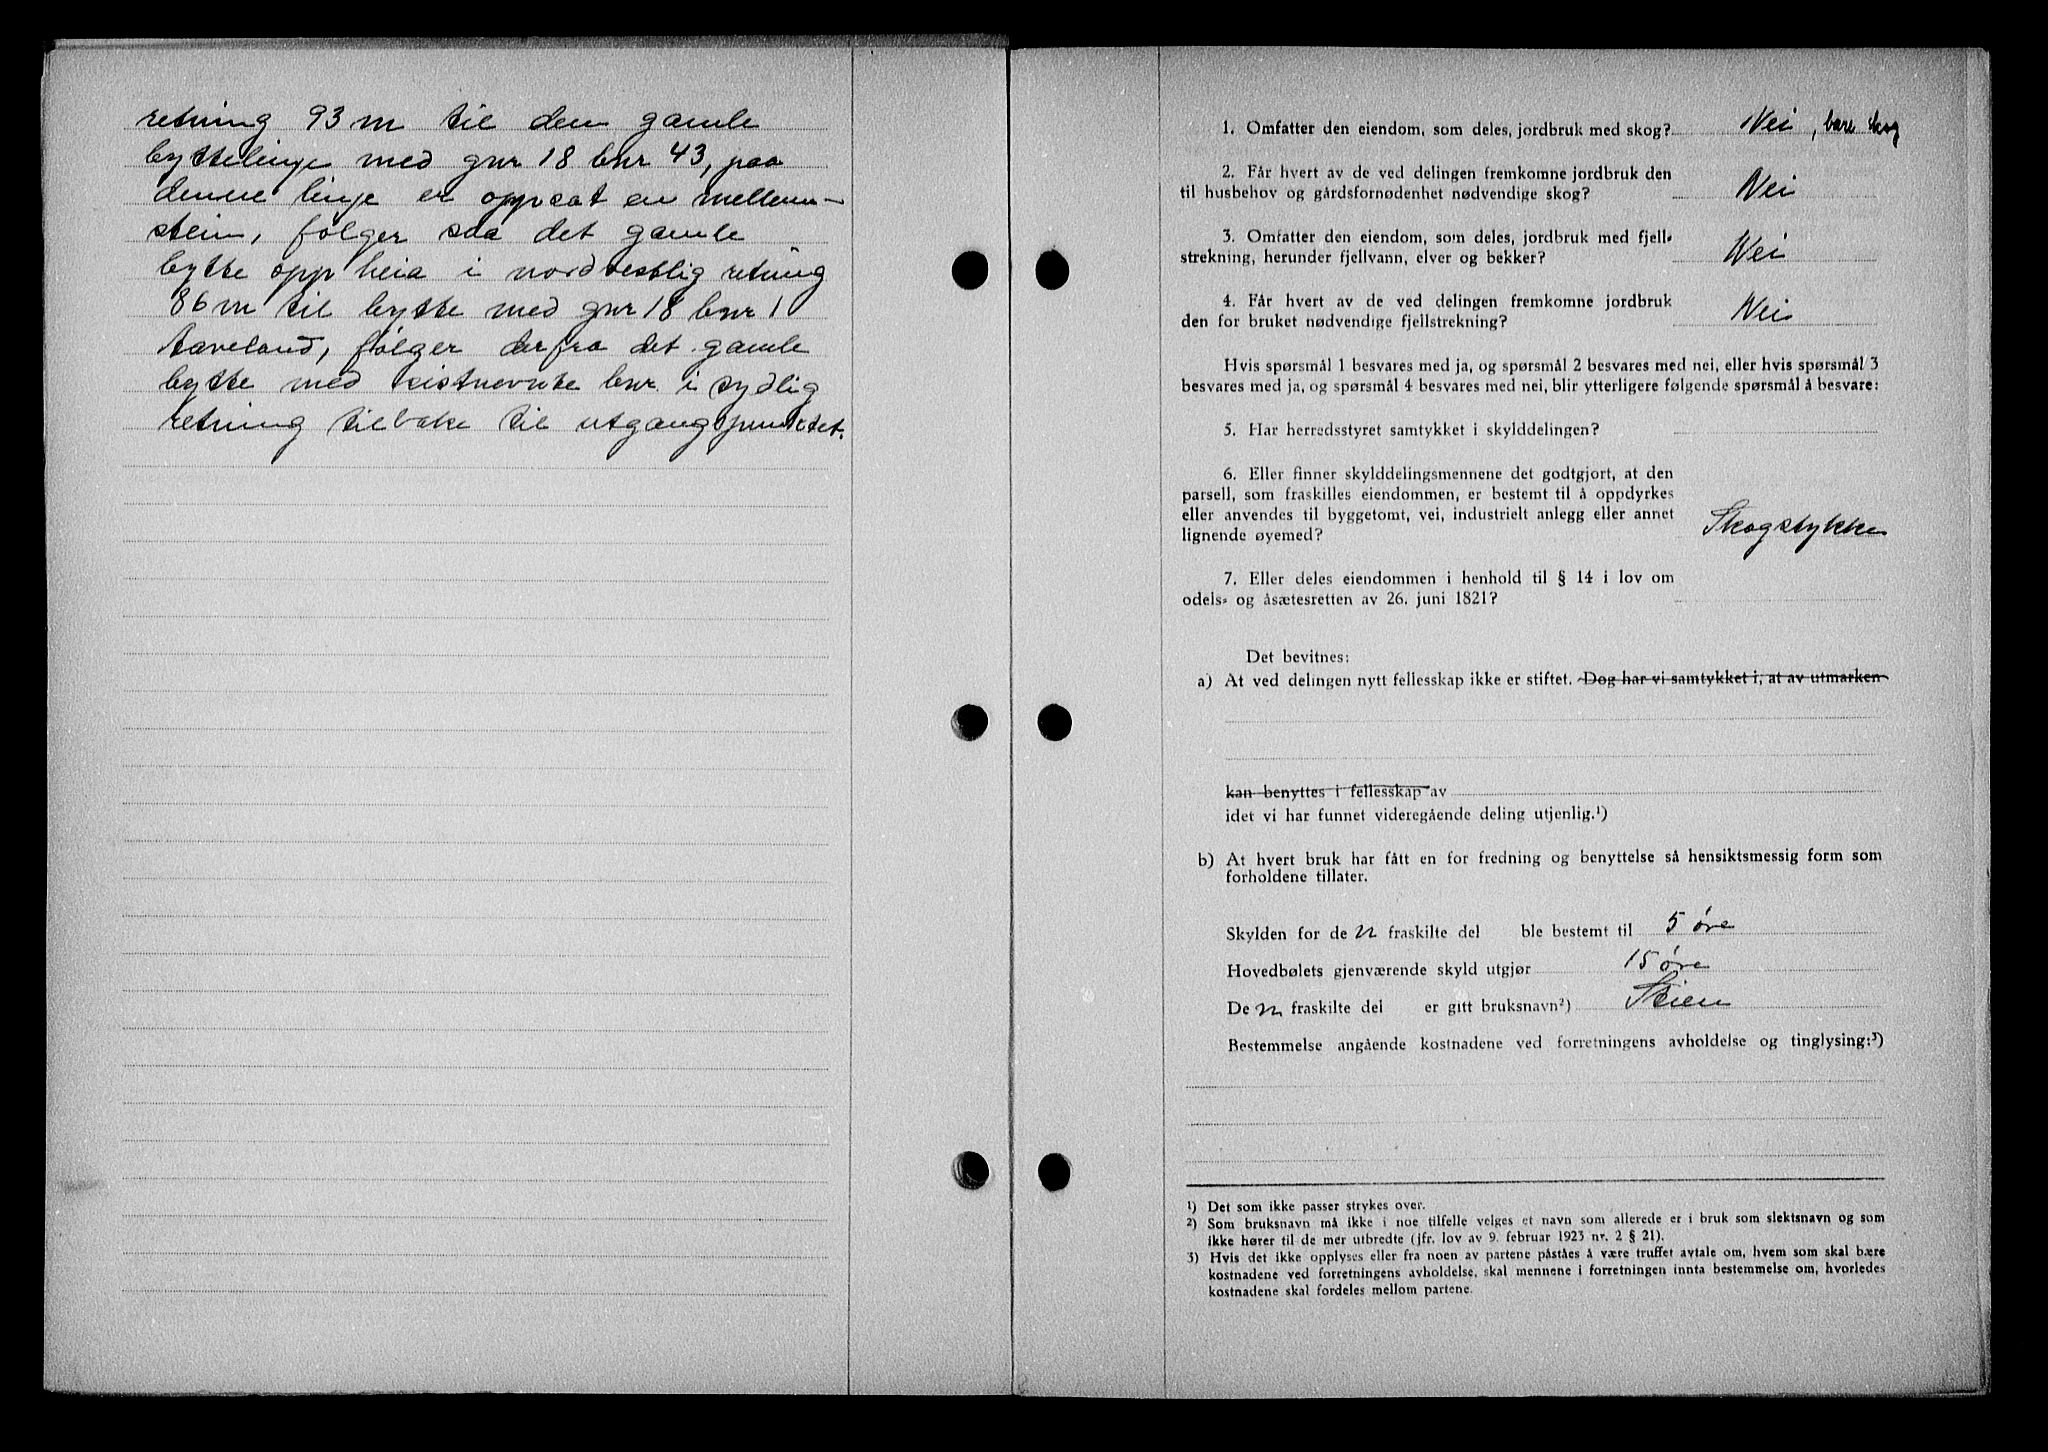 retning 93 m til den gamle
byttelinje med gnr 18 bnr 43, paa
denne linje er oppsat en mellem-
stein, følger saa det gamle
bytte opp heia i nordvestlig retning
86 m til bytte med gnr 18 bnr 1
følger derfra det gamle
bytte med sistnevnte bnr. i sydlig
retning tilbake til utgangspunktet.
1. Omfatter den eiendom, som deles, jordbruk med skog? Nei, bare skog
2. Får hvert av de ved delingen fremkomne jordbruk den
til husbehov og gårdsfornødenhet nødvendige skog? Nei
3. Omfatter den eiendom, som deles, jordbruk med fjell-
strekning, herunder fjellvann, elver og bekker? Nei
4. Får hvert av de ved delingen fremkomne jordbruk
den for bruket nødvendige fjellstrekning? Nei
Hvis spørsmål 1 besvares med ja, og spørsmål 2 besvares med nei, eller hvis spørsmål 3
besvares med ja, og spørsmål 4 besvares med nei, blir ytterligere følgende spørsmål å besvare:
5. Har herredsstyret samtykket i skylddelingen?
6. Eller finner skylddelingsmennene det godtgjort, at den
parsell, som fraskilles eiendommen, er bestemt til å oppdyrkes
eller anvendes til byggetomt, vei, industrielt anlegg eller annet
lignende øyemed? Skogstykke
7. Eller deles eiendommen i henhold til § 14 i lov om
odels- og åsætesretten av 26. juni 1821?
Det bevitnes:
a) At ved delingen nytt fellesskap ikke er stiftet. Dog har vi samtykket i, at av utmarken
kan benyttes i fellesskap av
idet vi har funnet videregående deling utjenlig.¹)
b) At hvert bruk har fått en for fredning og benyttelse så hensiktsmessig form som
forholdene tillater.
Skylden for den fraskilte del ble bestemt til 5 øre
Hovedbølets gjenværende skyld utgjør 15 øre
Den fraskilte del er gitt bruksnavn²)
Bestemmelse angående kostnadene ved forretningens avholdelse og tinglysing:³)
¹) Det som ikke passer strykes over.
²) Som bruksnavn må ikke i noe tilfelle velges et navn som allerede er i bruk som slektsnavn og som
ikke hører til de mer utbredte (jfr. lov av 9. februar 1923 nr. 2 § 21).
3) Hvis det ikke opplyses eller fra noen av partene påståes å være truffet avtale om, hvem som skal bære
kostnadene ved forretningens avholdelse, skal mennene i forretningen innta bestemmelse om, hvorledes
kostnadene skal fordeles mellom partene.